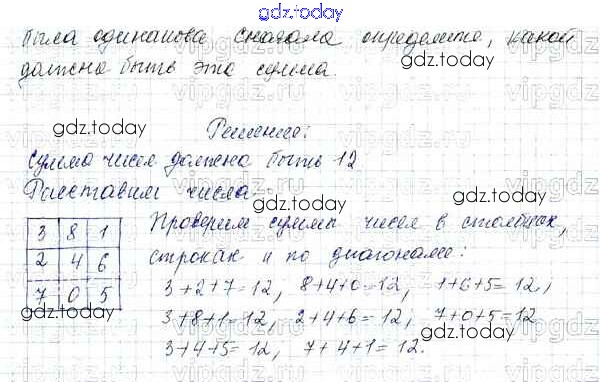 gdz.today
была одинакова. Сначала определите, какой
должна быть эта сумма.
gdz.today
Решение:
Сумма чисел должна быть 12
gdz.today
Расставим числа.
3 8 1
2 4 6
7 0 5
Проверим суммы чисел в столбцах,
строках и по диагонали:
3+2+7=12, 8+4+0=12, 1+6+5=12,
3+8+1=12, 2+4+6=12, 7+0+5=12
3+4+5=12, 7+4+1=12.
gdz.today
gdz.today
gdz.today
gdz.today